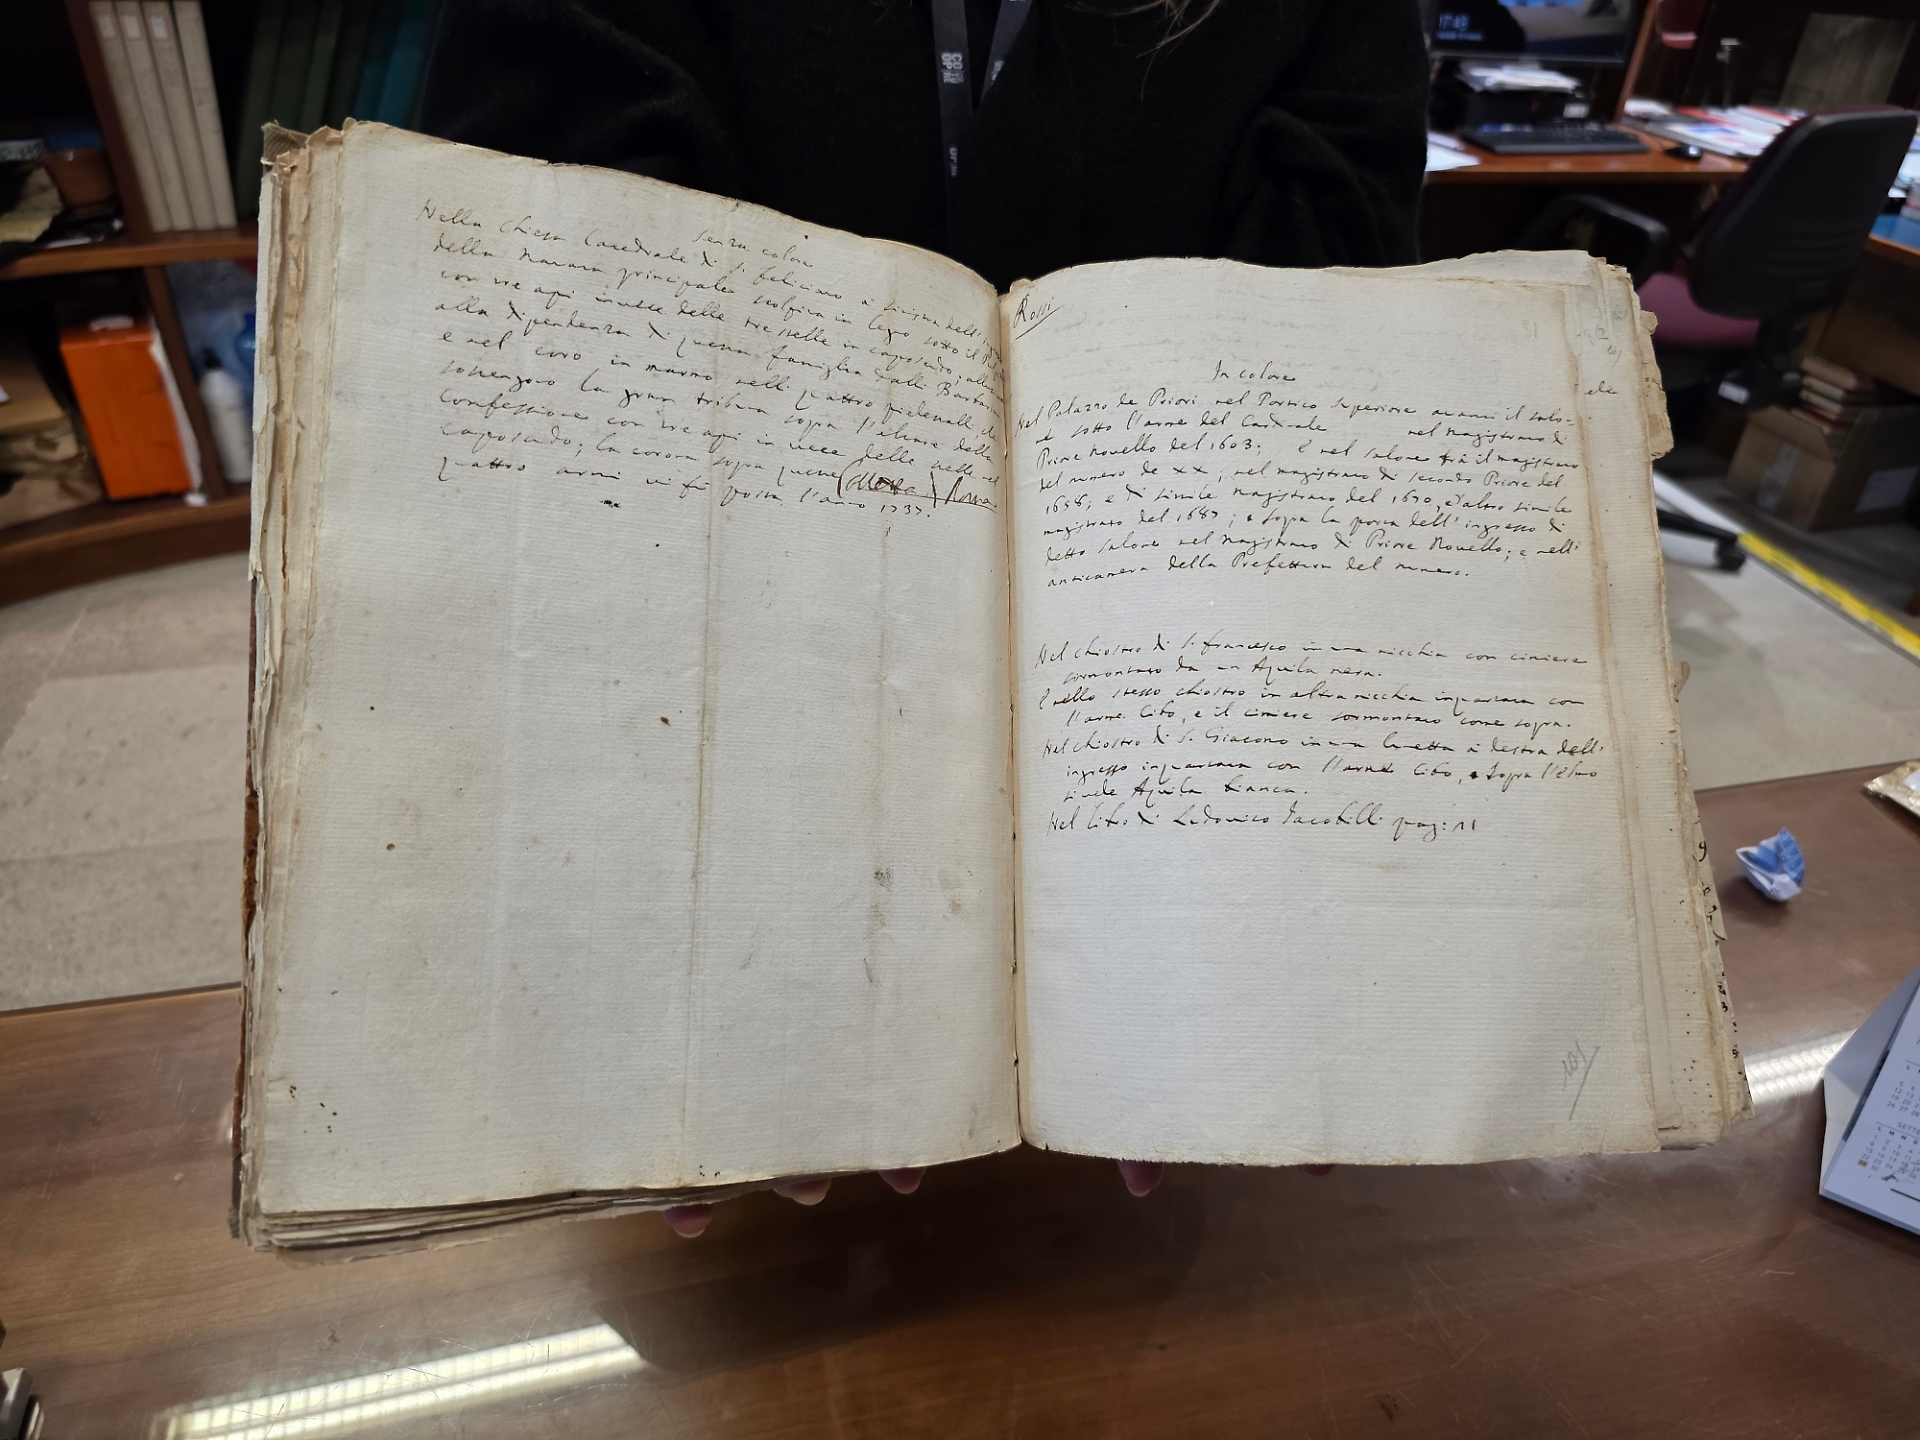 senza colore
Nella Chiesa Catedrale di S. Feliciano a sinistra dell'
della Navata principale scolpita in legno sotto il
con tre api invece delle tre stelle in caposcudo; allu
alla dipendenza di questa famiglia dalli Barbarini
e nel coro in marmo nelli quattro piedestalli che
sostengono la gran tribuna sopra l'altare della
Confessione con tre api in vece delle stelle nel
caposcudo; la corona sopra queste di Roma
quattro armi vi fù posta l'anno 1737.
Rossi
81
In colore
Nel Palazzo de Priori nel Portico superiore avanti il salo-
ne sotto l'arme del Cardinale nel magistrato di
Priore Novello del 1603; e nel salone frà il magistrato
del numero de XX; nel magistrato di secondo Priore del
1658; e di simile magistrato del 1670, e d'altro simile
magistrato del 1687; e sopra la porta dell'ingresso di
detto salone nel magistrato di Priore Novello; e nell'
anticamera della Prefettura del numero.
Nel chiostro di S. Francesco in una nicchia con cimiere
sormontato da un Aquila nera.
E nello stesso chiostro in altra nicchia inquartata con
l'arme Cibo, e il cimiere sormontato come sopra.
Nel chiostro di S. Giacomo in una lunetta a destra dell'
ingresso inquartata con l'arme Cibo, e sopra l'elmo
simile Aquila bianca.
Nel libro di Ludovico Jacobilli pag: 11
101